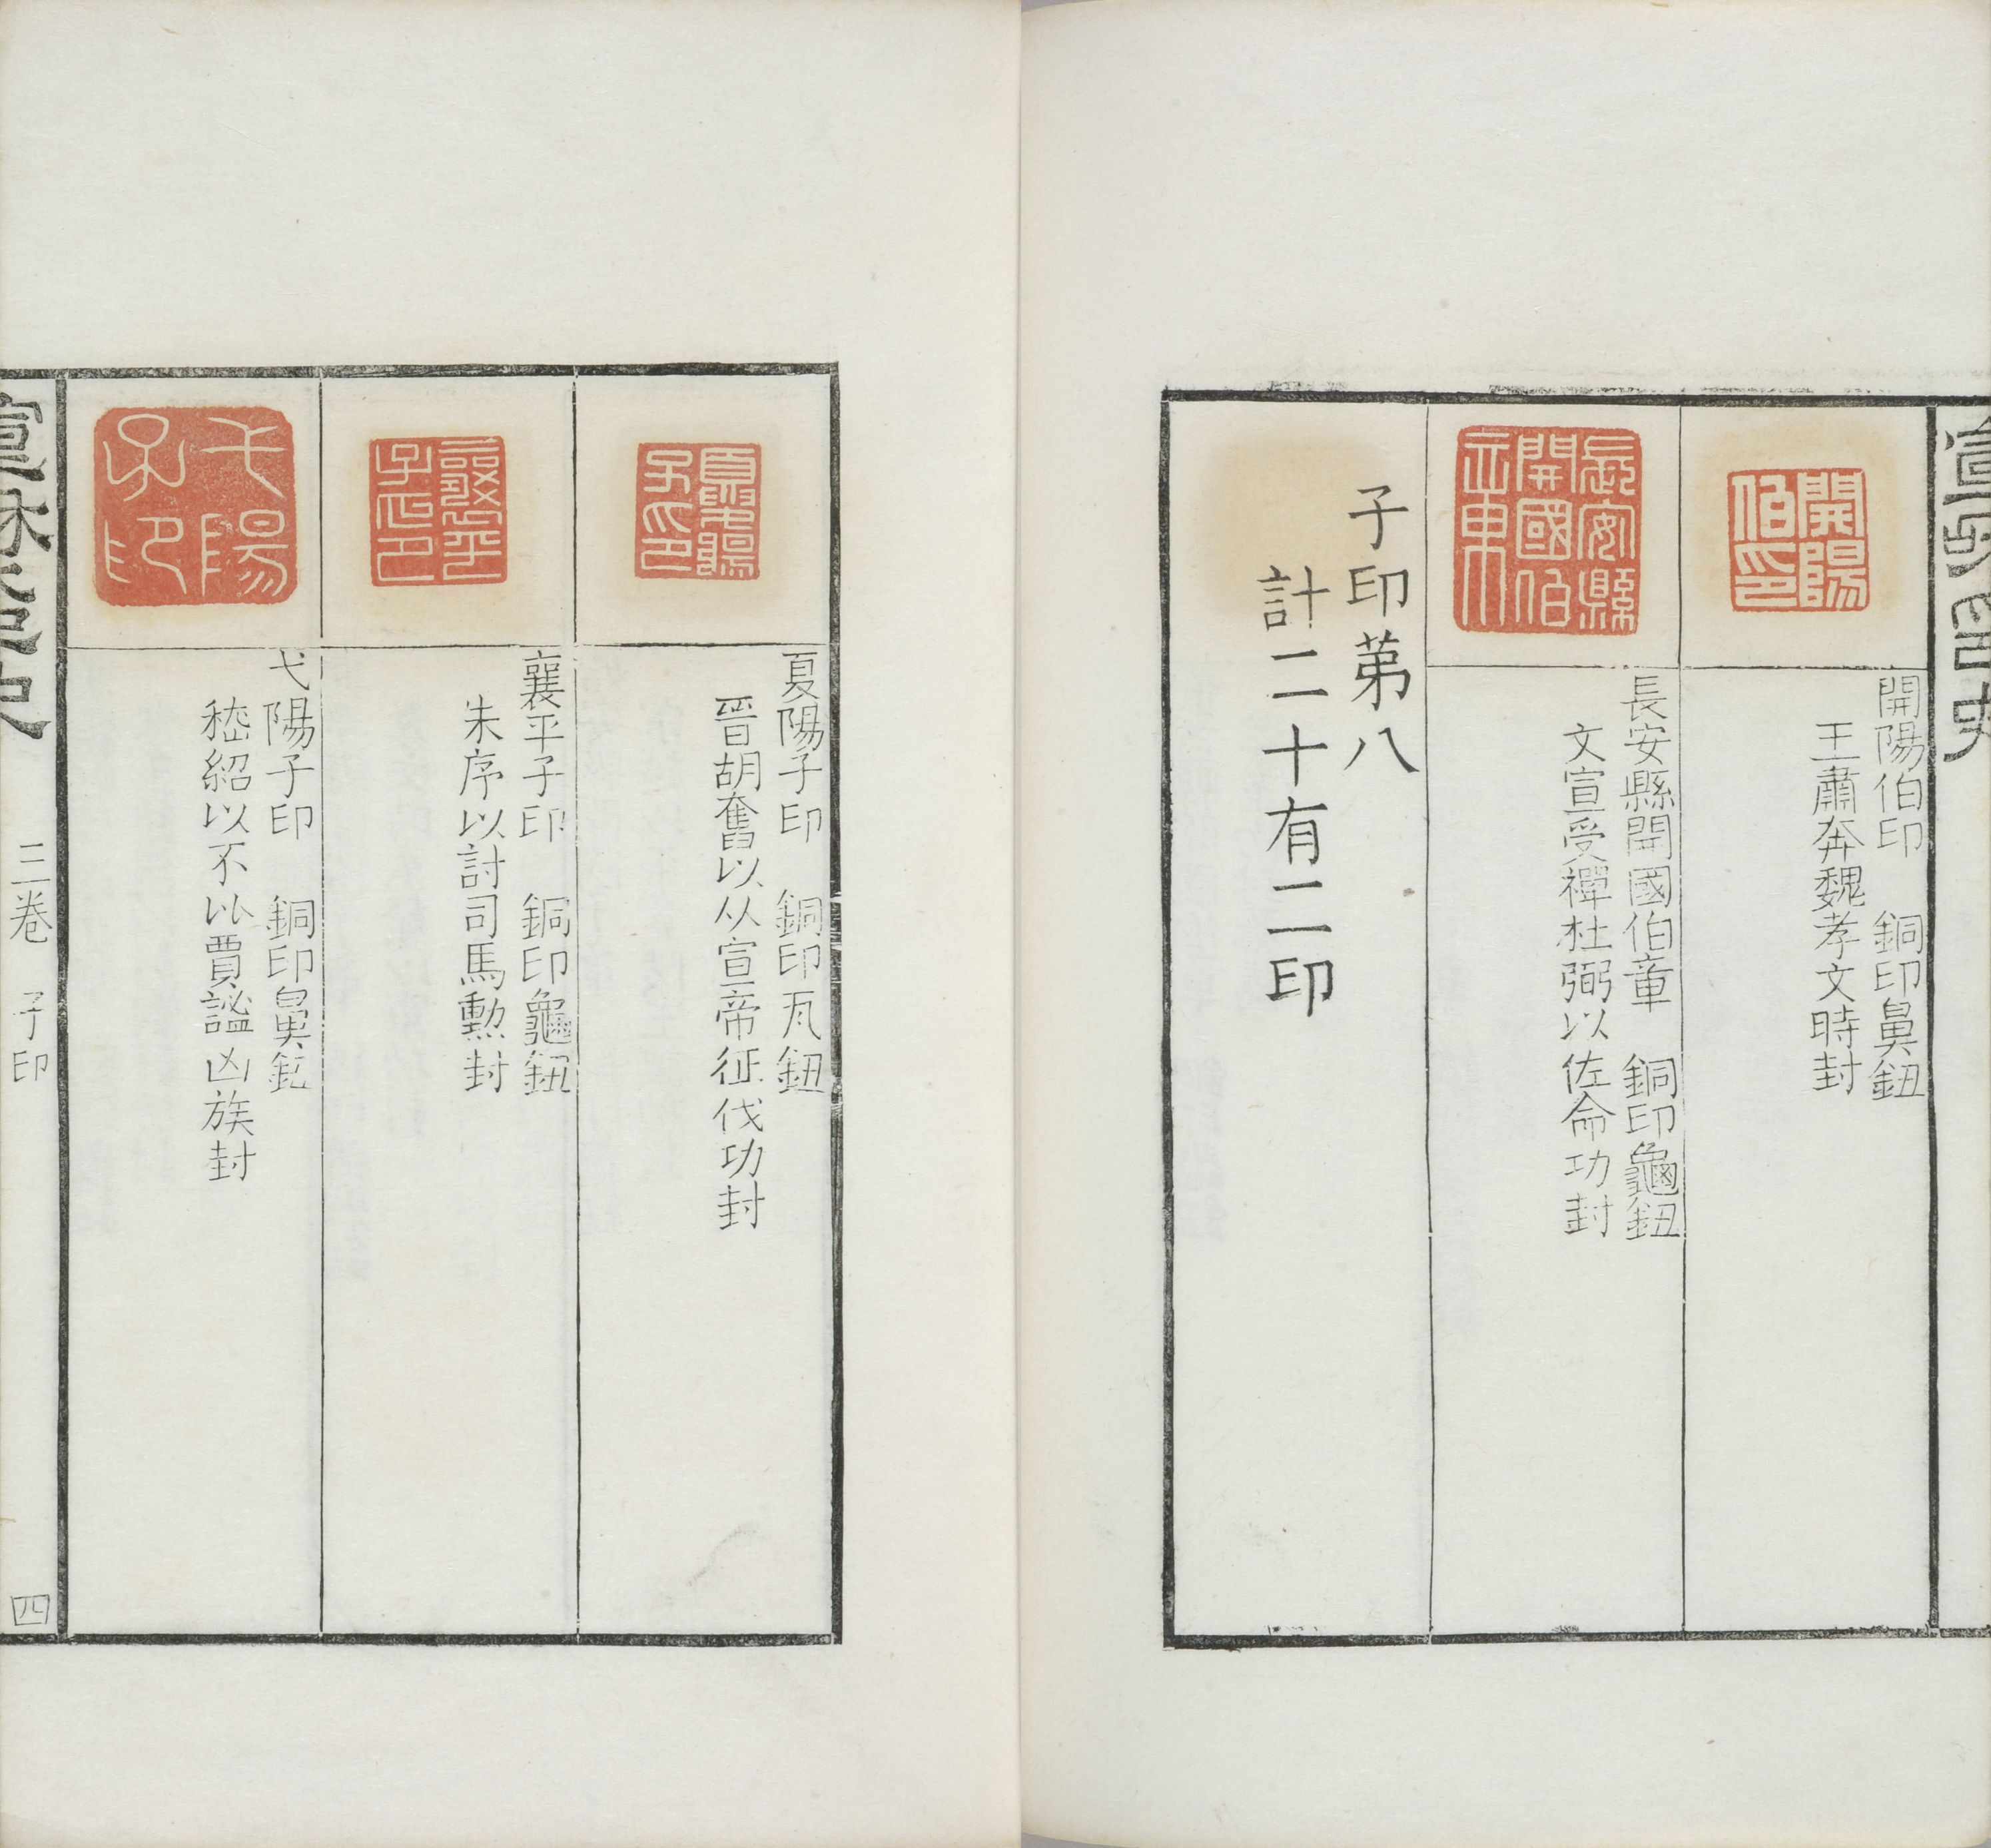 宣和印史
開陽伯印
開陽伯印　銅印鼻鈕
王肅奔魏孝文時封
長安縣開國伯章
長安縣開國伯章　銅印龜鈕
文宣受禪杜弼以佐命功封
子印苐八
計二十有二印
夏陽子印
夏陽子印　銅印瓦鈕
晉胡奮以从宣帝征伐功封
襄平子印
襄平子印　銅印龜鈕
朱序以討司馬勲封
弋陽子印
弋陽子印　銅印鼻鈕
嵇紹以不比賈謐凶族封
宣和印史
三卷　子印
四